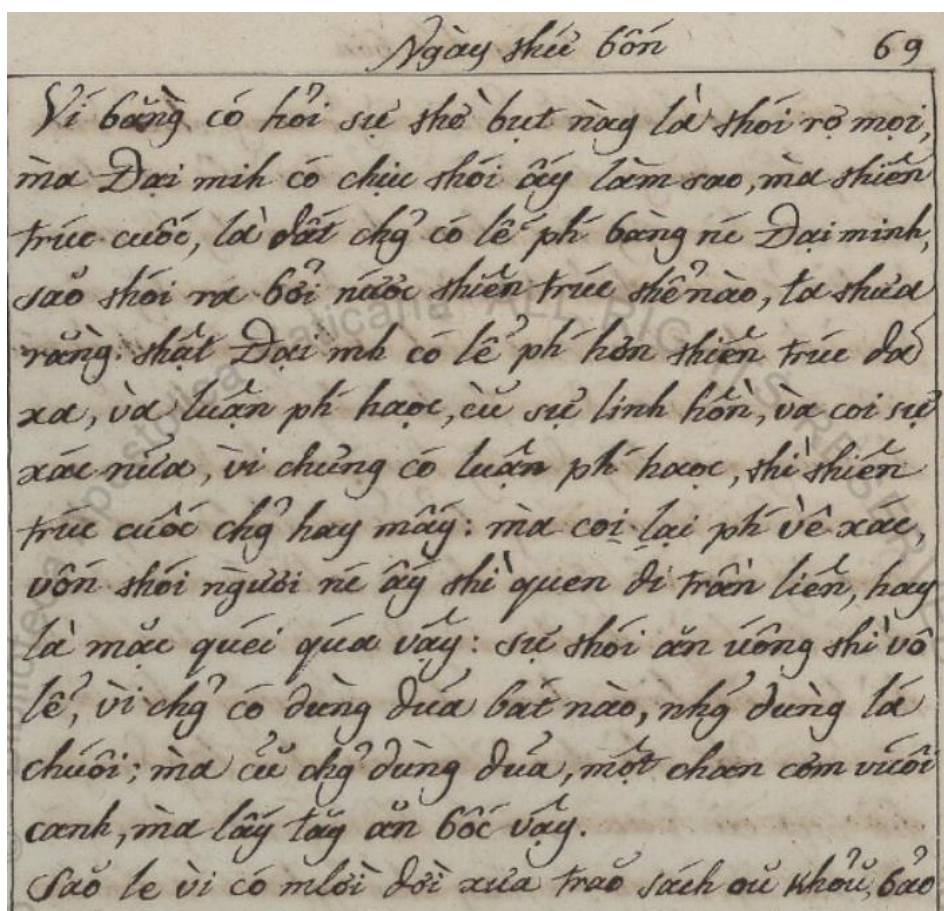 Ngày thứ bốn 69
Ví bằng có hỏi sự thờ bụt này là thói rợ mọi,
mà Đại mih có chịu thói ấy làm sao, mà thiên
trúc cuốc, là đất chg̉ có lể phí bàng né Đại minh,
saõ thói ra bởi nước thiên trúc thể nào, ta thưa
rằng: thật Đại mh có lể phí hơn thiên trúc đã
xa, ꞗà luận phí haọc, cũ sự linh hồn, ꞗà coi sự
xác nữa, ꞗì chưng có luận phí haọc, thì thiên
trúc cuốc chg̉ hay mấy: mà coi lại phí ꞗề xác,
vốn thói người né ấy thì quen đi trần liên, hay
là mặc quéi qúa vậy: sự thói ăn uống thì vô
lể, ꞗì chg̉ có dùng đũa bát nào, nhg̉ dùng lá
chuối; mà cũ chg̉ dùng đũa, một chan cơm vuối
canh, mà lấy tăy ăn bốc vậy.
Saõ le ꞗì có mlời đời xưa traõ sách oũ Khổũ, bảo